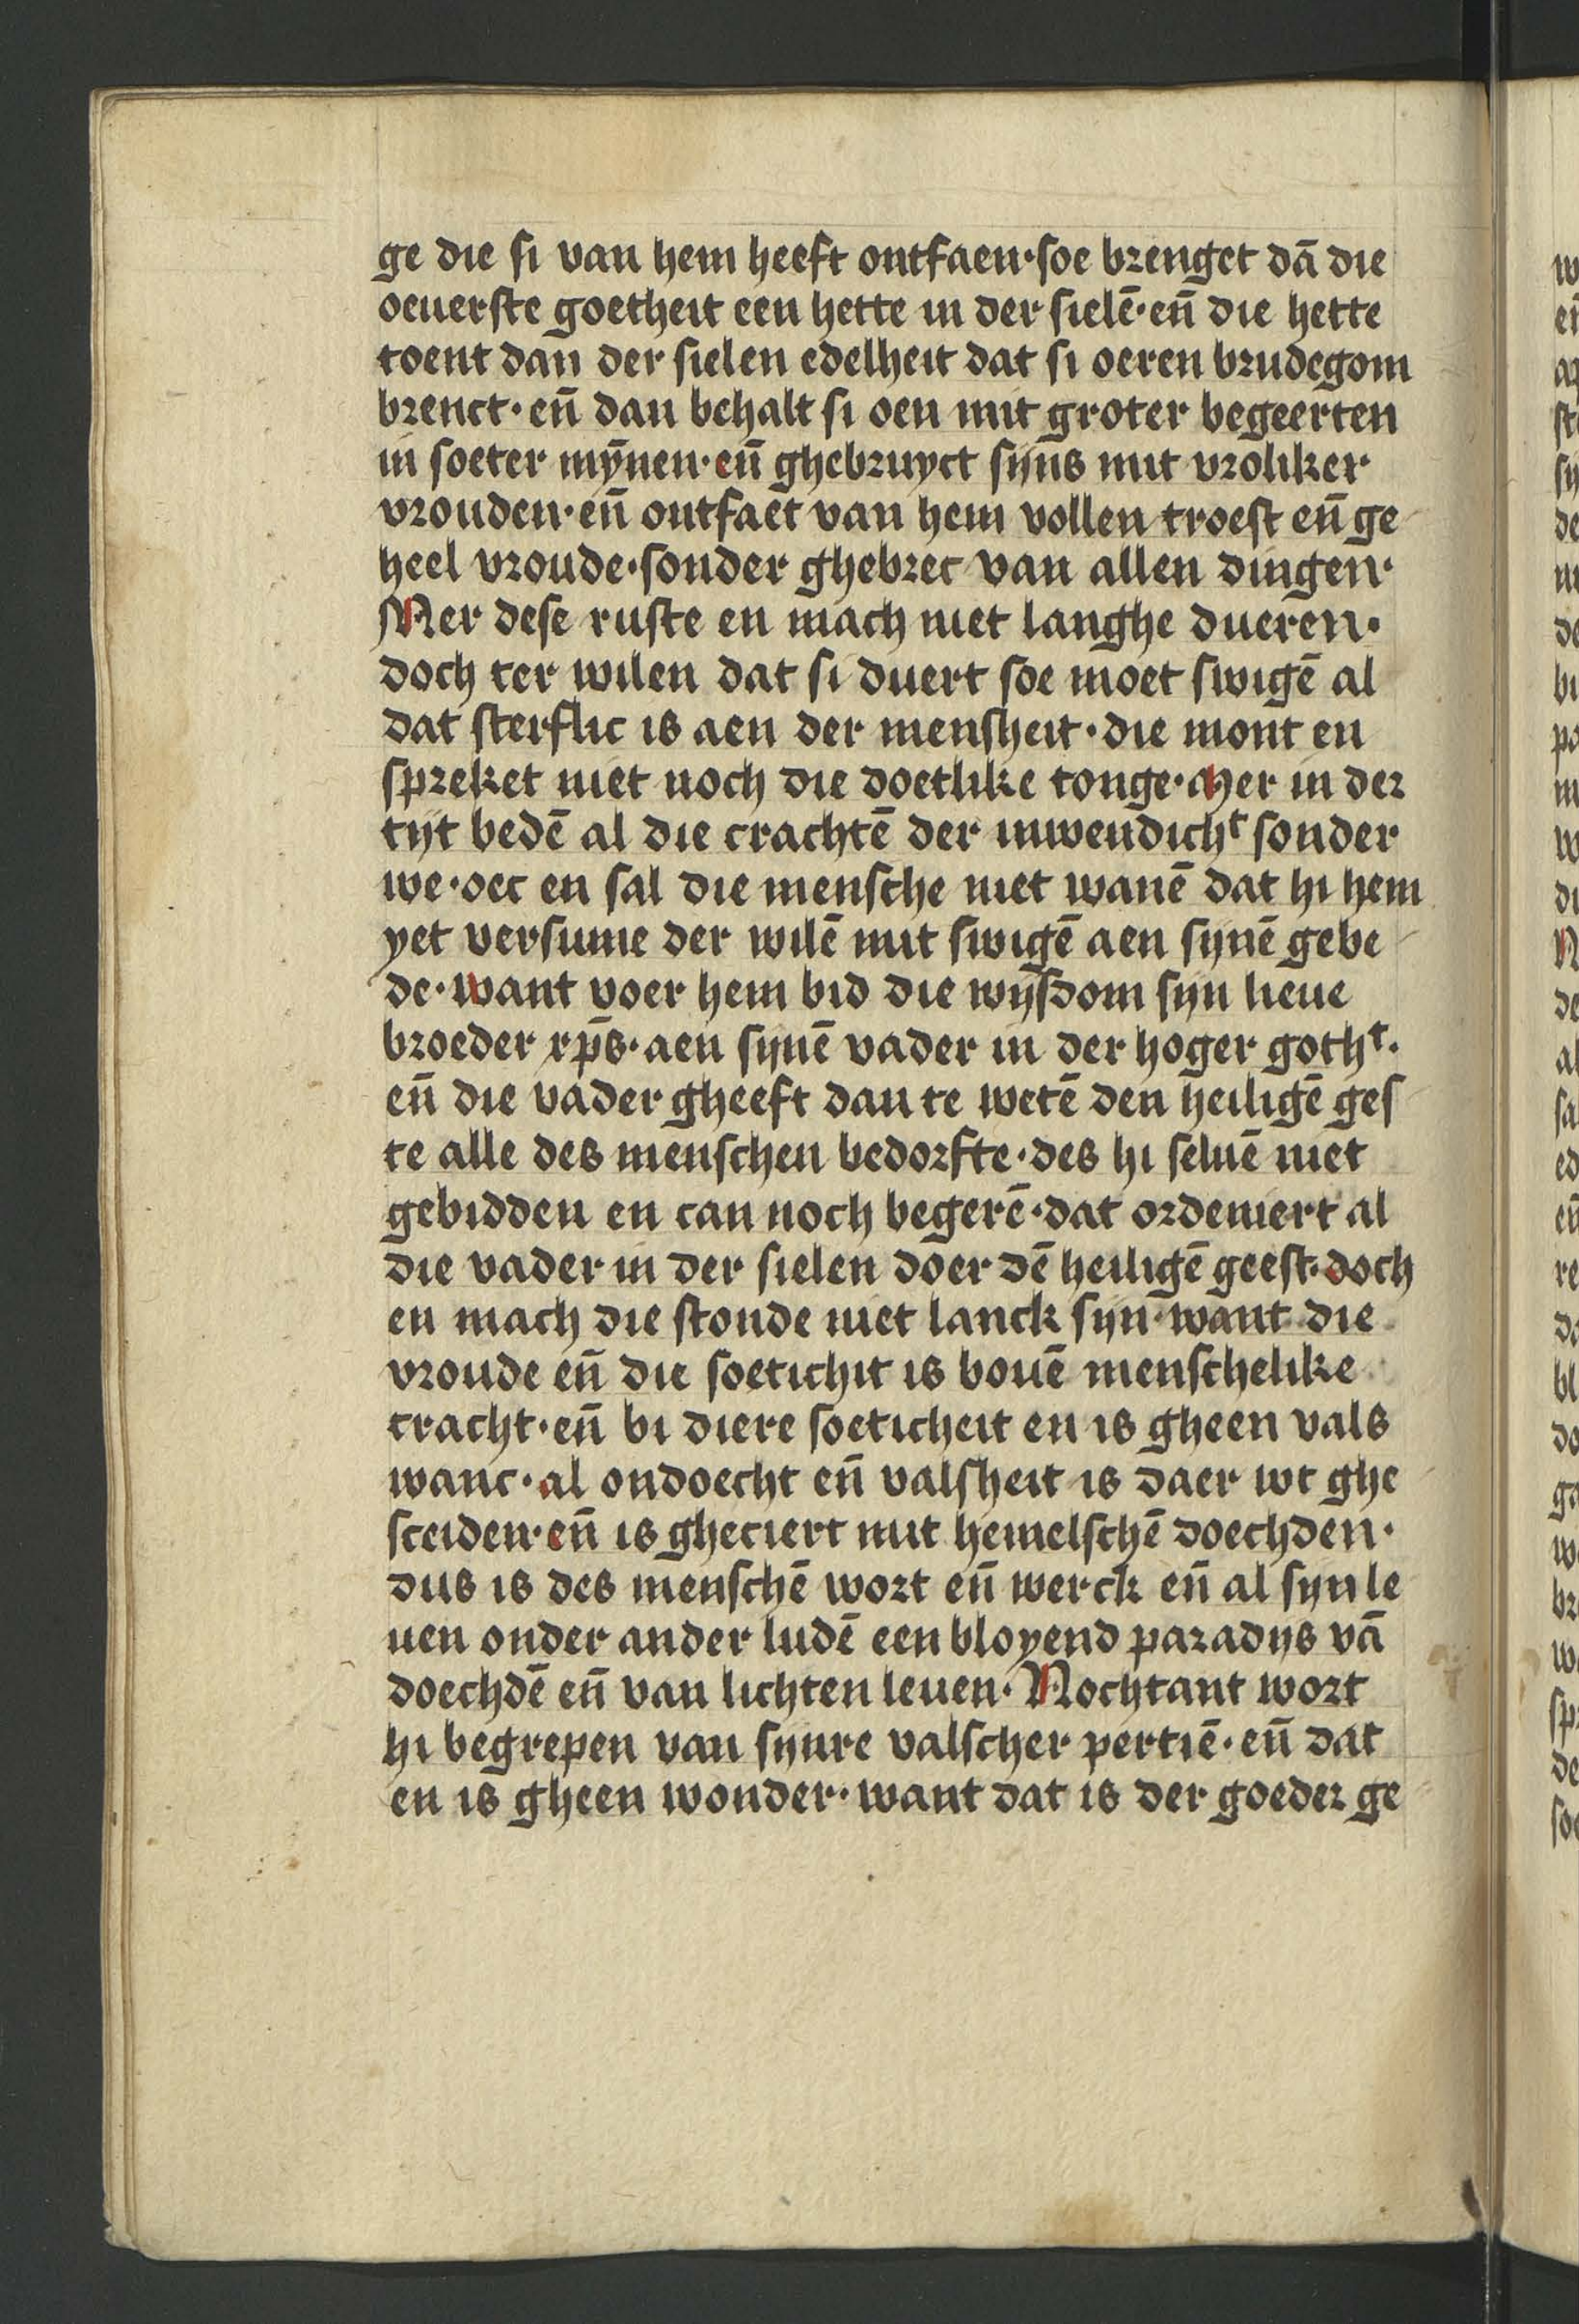 ge die si van hem heeft ontfaen·soe brenget dā die
oeuerste goetheit een hette in der sielē·en̄ die hette
toent dan der sielen edelheit dat si oeren brudegom
brenct·en̄ dan behalt si oen mit groter begeerten
in soeter mȳnen·en̄ ghebruyct sijns mit vroliker
vrouden·en̄ ontfaet van hem vollen troest en̄ ge
heel vroude·sonder ghebrec van allen dingen·
Mer dese ruste en mach niet langhe dueren·
doch ter wilen dat si duert soe moet swigē al
dat sterflic is aen der mensheit·die mont en
spreket niet noch die doetlike tonge·Mer in der
tijt bedē al die crachtē der inwendichᵗ sonder
we·oec en sal die mensche niet wanē dat hi hem
yet versume der wilē mit swigē aen sijnē gebe
de·want voer hem bid die wijsdom sijn lieue
broeder xp̄s·aen sijnē vader in der hoger gothᵗ·
en̄ die vader gheeft dan te wetē den heiligē ges
te alle des menschen bedorfte·des hi seluē niet
gebidden en can noch begerē·dat ordeniert al
die vader in der sielen doer dē heiligē geest·doch
en mach die stonde niet lanck sijn·want die
vroude en̄ die soetichit is bouē menschelike
cracht·en̄ bi diere soeticheit en is gheen vals
wanc·al ondoecht en̄ valsheit is daer wt ghe
sceiden·en̄ is gheciert mit hemelschē doechden·
dus is des menschē wort en̄ werck en̄ al sijn le
uen onder ander ludē een bloyend paradijs vā
doechdē en̄ van lichten leuen·Nochtant wort
hi begrepen van sijnre valscher pertiē·en̄ dat
en is gheen wonder·want dat is der goeder ge